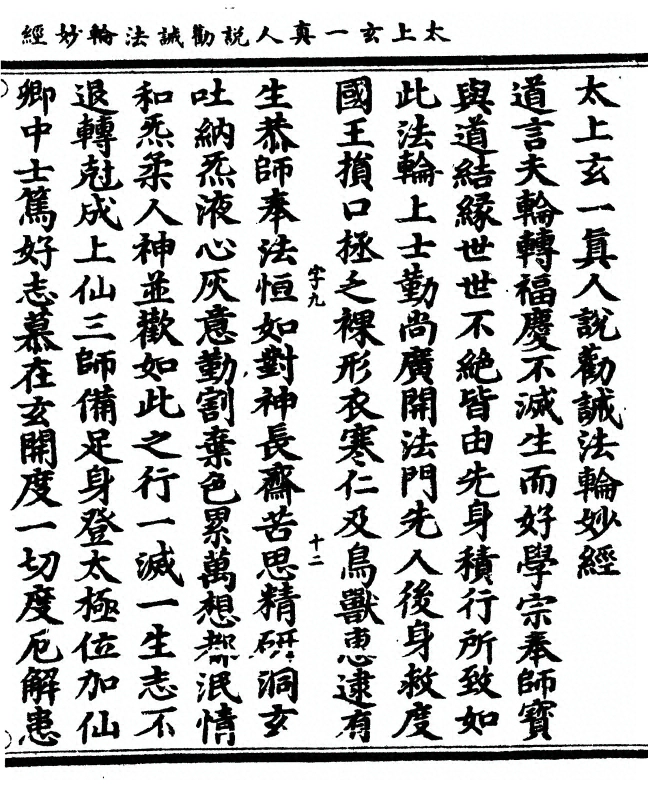 太上玄一真人說勸誡法輪妙經
太上玄一眞人說勸誡法輪妙經
道言夫輪轉福慶不滅生而好學宗奉師寶
與道結緣世世不絕皆由先身積行所致如
此法輪上士勤尚廣開法門先人後身救度
國王損口拯乏裸形衣寒仁及鳥獸惠逮有
字九
十二
生恭師奉法恒如對神長齋苦思精研洞玄
吐納炁液心灰意勤割棄色累萬想都泯情
和炁柔人神並歡如此之行一滅一生志不
退轉尅成上仙三師備足身登太極位加仙
卿中士篤好志慕在玄開度一切度厄解患